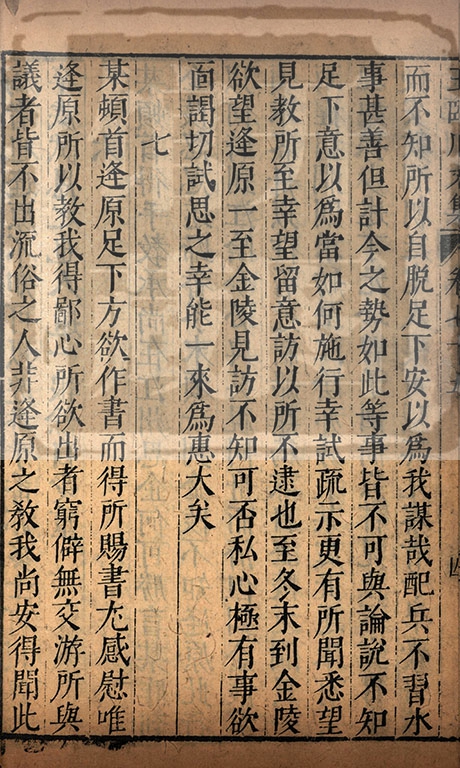 而不知所以自脫足下安以為我謀哉配兵不習水
事甚善但計今之勢如此等事皆不可與論說不知
足下意以為當如何施行幸試疏示更有所聞悉望
見教所至幸望留意訪以所不逮也至冬末到金陵
欲望逢原一至金陵見訪不知可否私心極有事欲
面謁切試思之幸能一來為惠大矣
七
某頓首逢原足下方欲作書而得所賜書尤感慰唯
逢原所以教我得鄙心所欲出者窮僻無交游所與
議者皆不出流俗之人非逢原之教我尚安得聞此